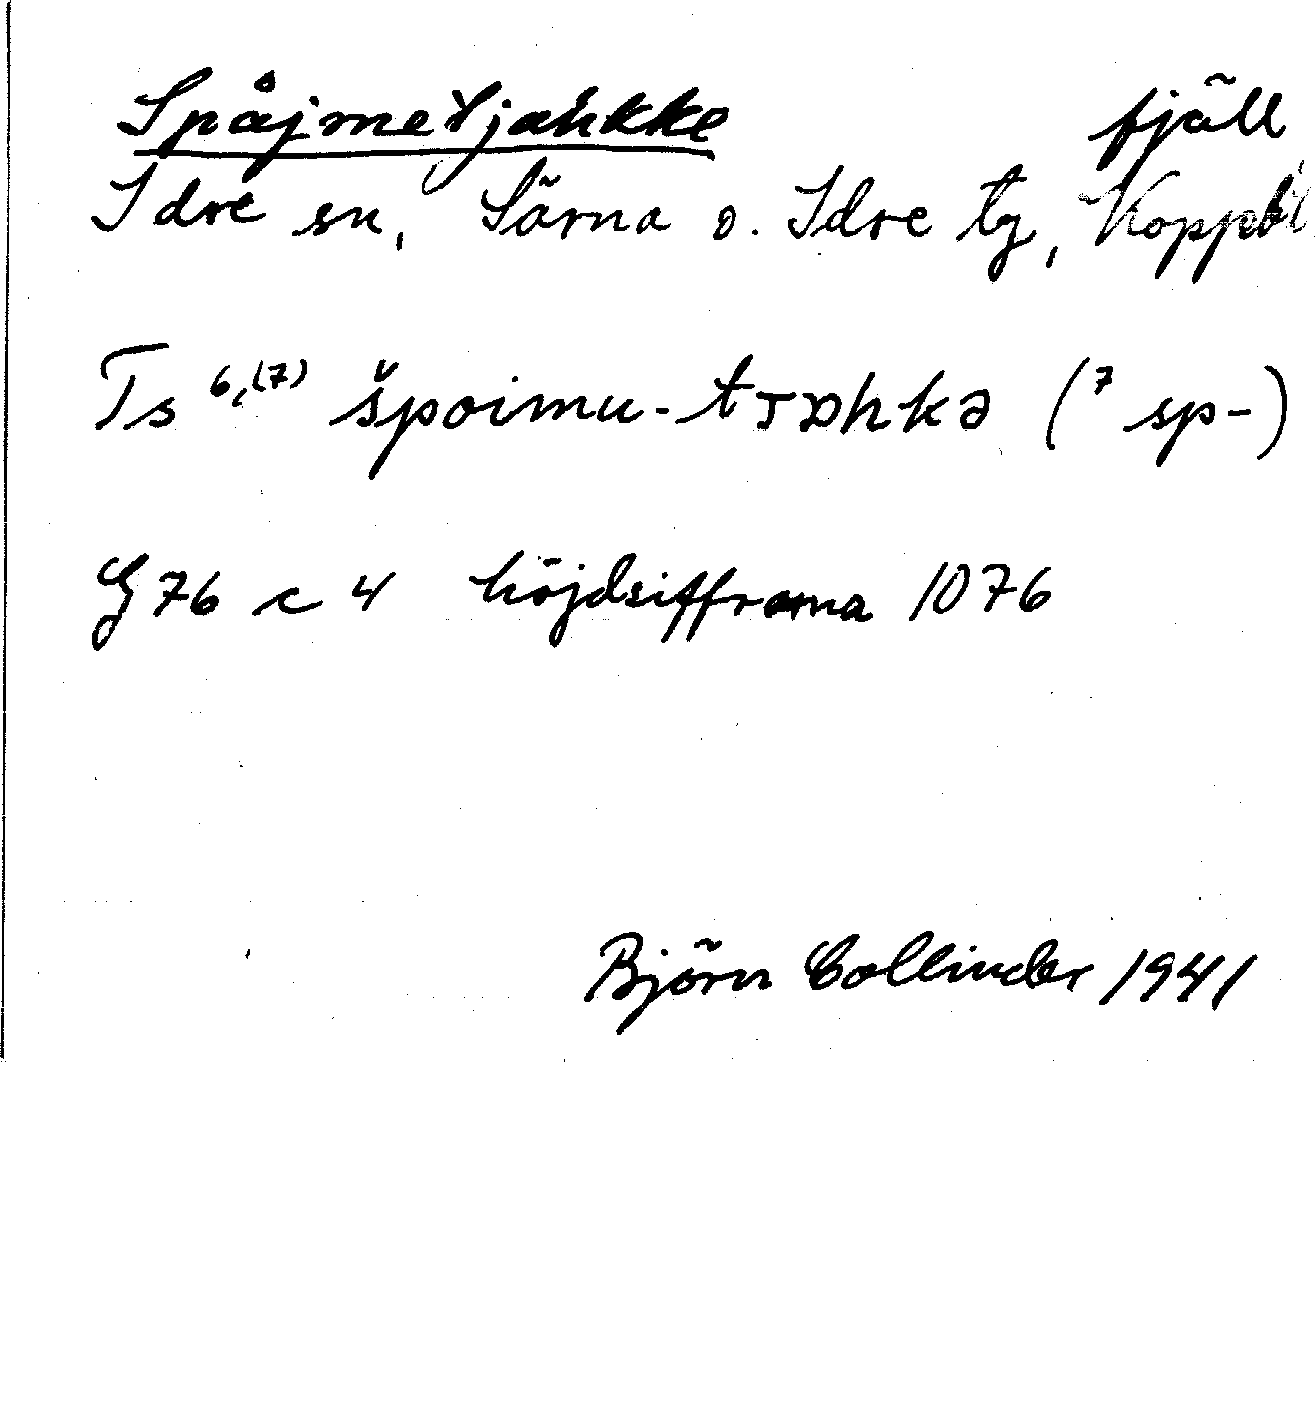 Spåjmetjahkke fjäll
Idre sn, Särna o. Idre tg, Koppbl
Ts 6,(7) špoimu-tᴊɒhkə (7 sp-)
G 76 c 4 höjdsiffrorna 1076
Björn Collinder 1941